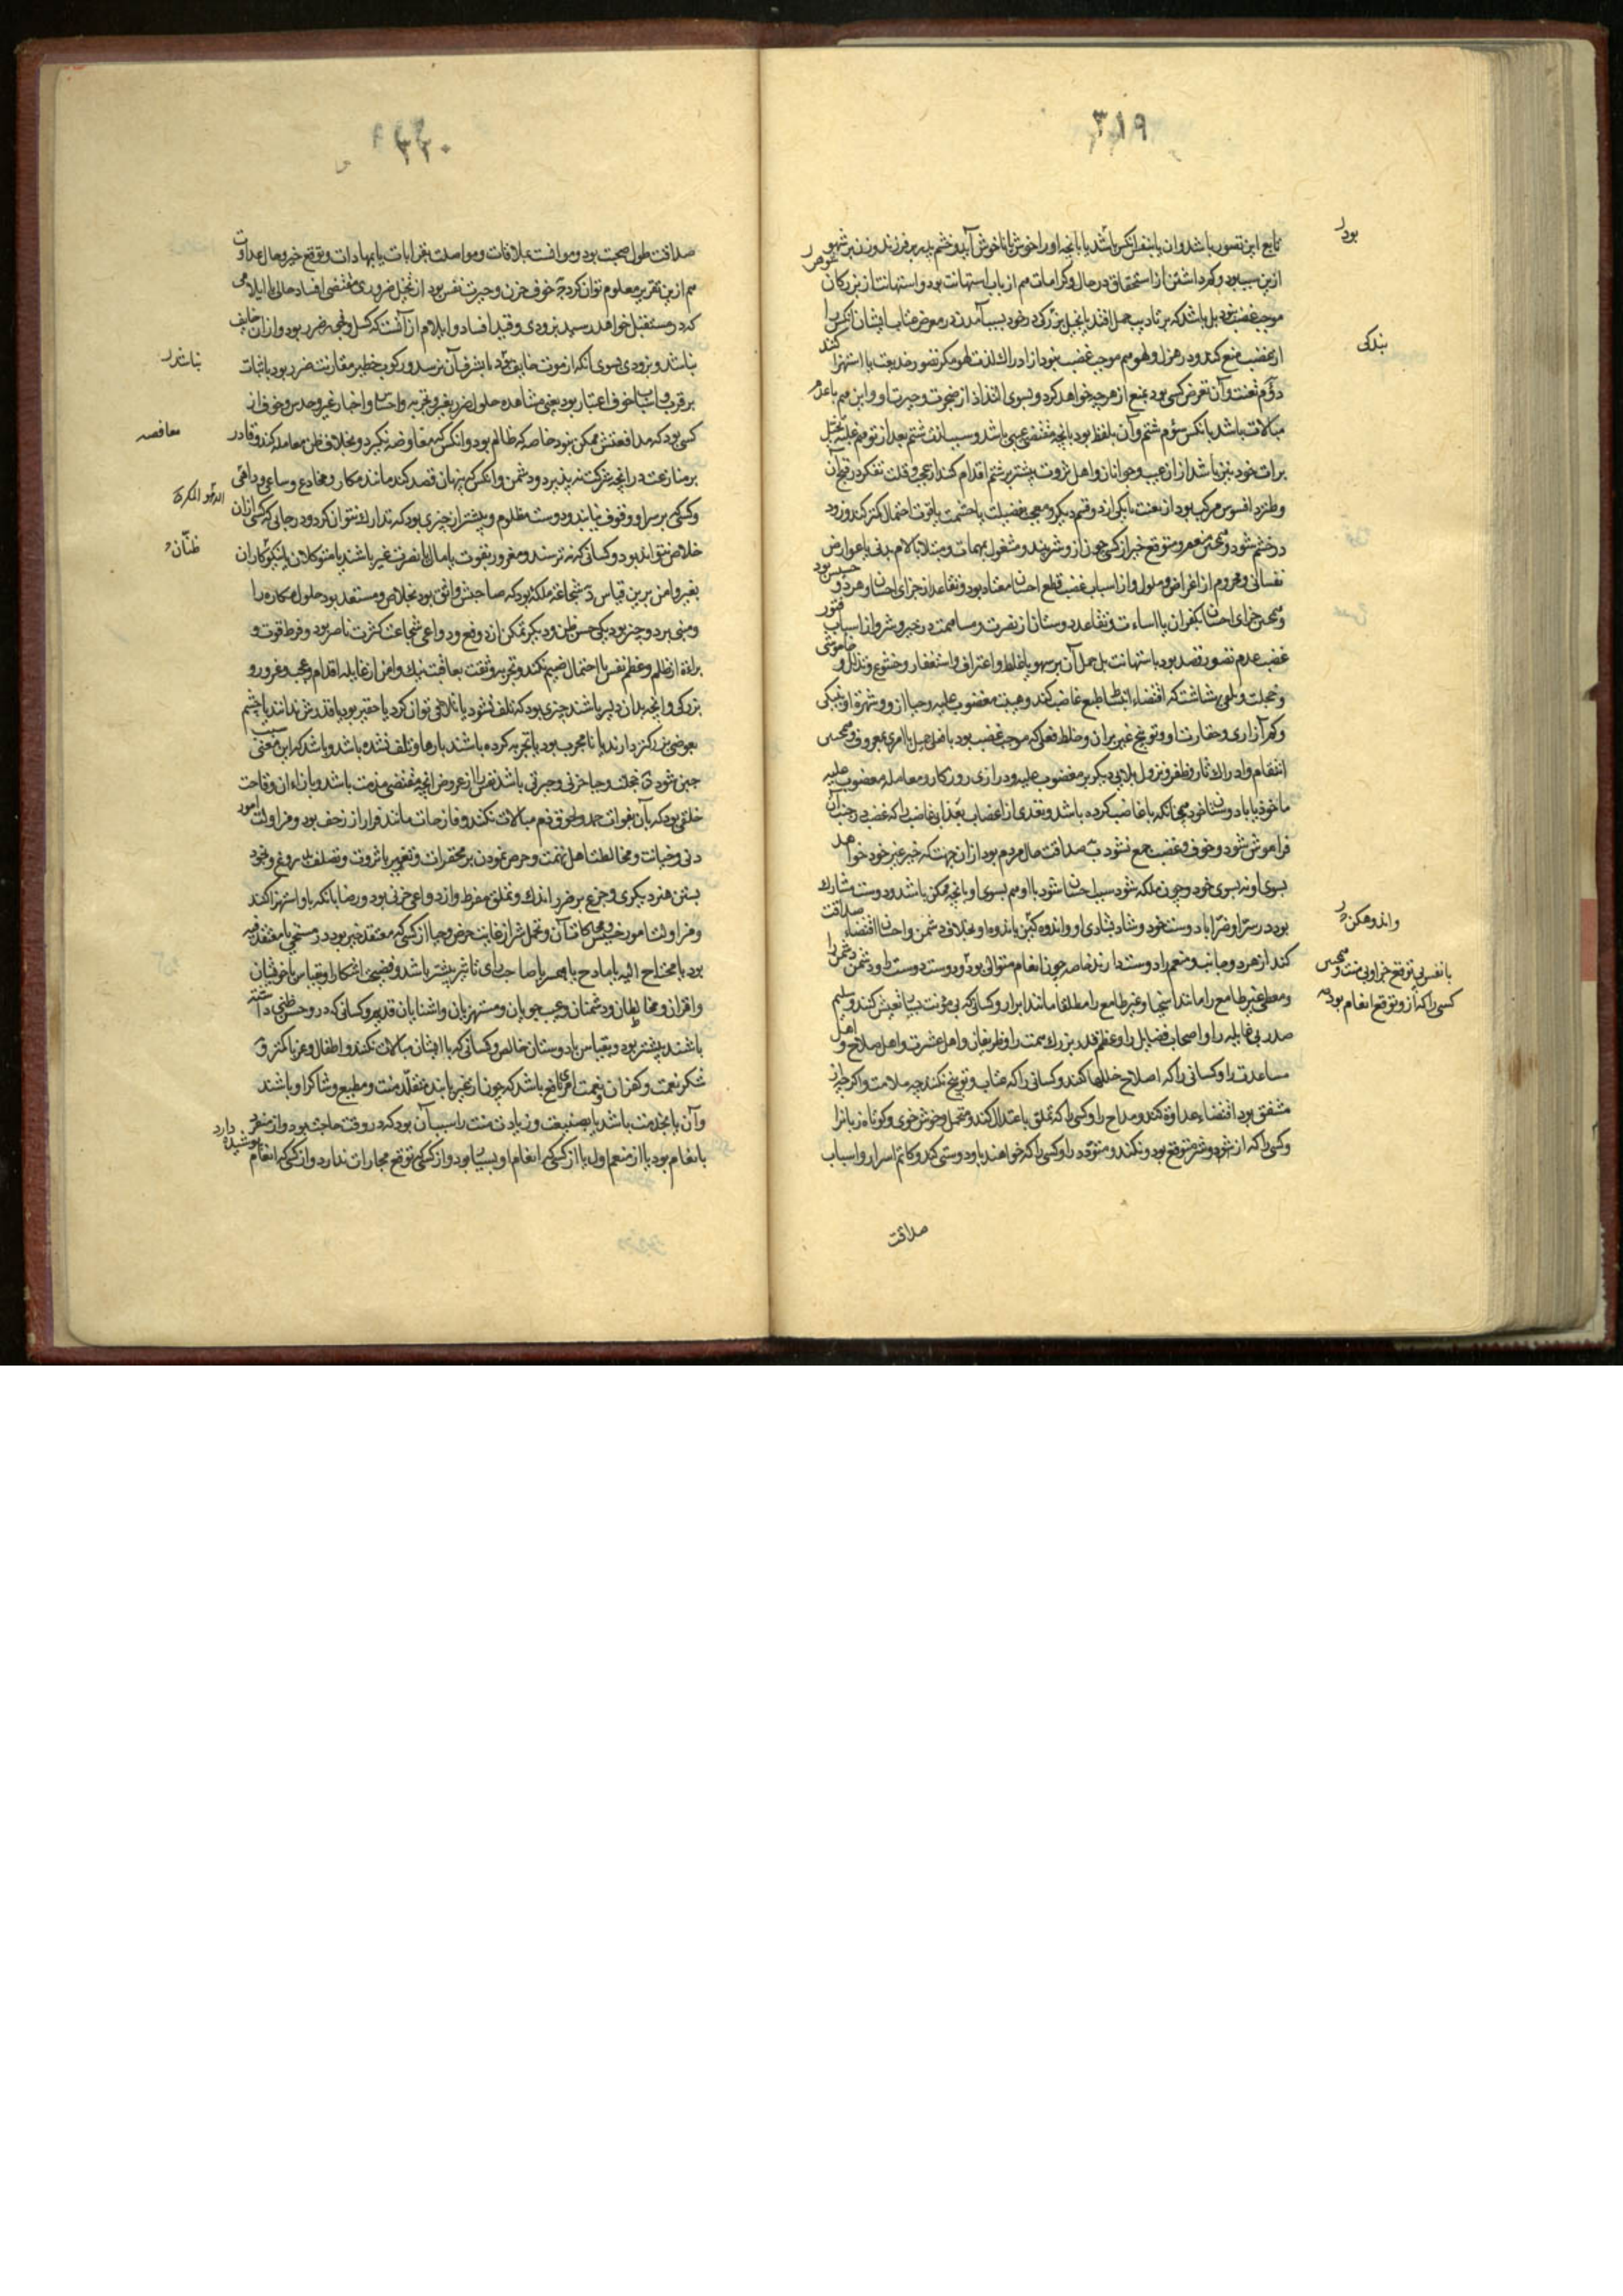 ٣١٩
بود
تابع این تصور باشد و ان یا بنفس انکس باشد یا بآنچه او را خوش یا ناخوش آید و خشم پدر بر فرزند و زن بر شوهر
ازین سبب بود و کم داشتن از استحقاق در حال و کرامات هم از باب استهانت بود و استهانت از بزرگان
موجب غضب نبود بل باشد که بر تأدیب حمل افتد یا تخیل بزرگی در خود بسبب آمدن در معرض عتاب ایشان انکس را
بندکی
از غضب منع کند و در هزل و لهو هم موجب غضب نبود از ادراک لذت لهو مکر تصور خدیعت یا استهزا کنند
دوم تعنت و آن تعرض کسی بود بمنع از هر چه خواهد کرد و بسوی التذاذ از ضجرت و حیرت او و این هم با عدم
مبالات باشد بانکس سوم شتم و آن بلفظ بود بآنچه مقتضی عیبی باشد و سبب لذت شتم بعد از توهم غلبه تخیل
برات خود نیز باشد از ان عیب و جوانان و اهل ثروت بیشتر بر شتم اقدام کنند از عجب و قلت تفکر در قبح آن
و طنز و افسوس مرکب بود از تعنت با یکی از دو قسم دیگر و معجب بفضیلت یا حشمت یا قوت احتمال کمتر کند و زود
در خشم شود و همچنین مغموم و متوقع خیر از کسی چون از و شر بیند و مشغول بمهمات و مبتلا بآلام بدنی یا عوارض
نفسانی و محروم از اغراض و ملول و از اسباب غضب قطع احسان معتاد بود و تقاعد از جزای احسان
و همچنین جزای احسان بکفران یا اساءت و تقاعد دوستان از نصرت و مساهمت در خیر و شر و از اسباب فتور
غضب عدم تصور قصد بود باستهانت بل حمل آن بر سهو یا غلط و اعتراف و استغفار و خشوع و تذلل و خاموشی
و خجلت و تلقی ببشاشت که اقتضاء انبساط طبع غاضب کند و هیبت مغضوب علیه و حیا از و و شهرت او بنیکی
و کم آزاری و حقارت او و توبیخ غیر بر ان و خلط فعلی که موجب غضب بود با فعل جمیل یا امری معروف و همچنین
انتقام و ادراک ثار و ظفر و نزول بلایی دیگر بر مغضوب علیه و درازی روزکار و معامله مغضوب علیه
فراموش شود و خوف و غضب جمع نشود
بسوی او نه بسوی خود و چون ملکه شود سبب احسان شود با او هم بسوی او بآنچه ممکن باشد و دوست مشارک
واندوهکن
بود در سرا و ضرا با دوست خود و شاد بشادی او و اندوهکین باندوه او بخلاف دشمن و احسان اقتضاء صداقت
بانفس بی توقع جزا و بی منت و همچنین
کسی را که از و توقع انعام بود
کند از هر دو جانب و منعم را دوست دارند خاصه چون انعام متوالی بود و دوست دوست را و دشمن دشمن را
و معطی غیر طامع را مانند اسخیا و غیر طامع را مطلقا مانند ابرار و کسانی که بی مؤنت دیگران تعیش کنند و سلیم
صدر بی غایله را و اصحاب فضایل را و عظیم قدر بزرک همت را و ظریفان و اهل عشرت و اهل صلاح و اهل
مساعدت را و کسانی را که اصلاح خللها کنند و کسانی را که عتاب و توبیخ نکنند چه ملامت و اکر چه از
مشفق بود اقتضاء عداوة کند و مداح را و کسی را که تملق باعتدال کند و متحمل و خوش خوی و کوتاه زبان را
و کسی را که از و شر متوقع نبود و نکند و متودد را و کسی را که خواهند با و دوستی کند و کاتم اسرار و اسباب
صداقت
٣٢٠
صداقت طول صحبت بود و موانست بملاقات و مواصلت بقرابات یا بمهادات و توقع خیر و حال عداوت
هم ازین تقریر معلوم توان کرد خوف حزن و حیرت نفس بود از تخیل ضروری مقتضی افساد حالی یا ایلامی
که در مستقبل خواهد رسید بزودی و قید افساد و ایلام از آنست که کسل و نحو آن ضرر بود و از ان خایف
نباشند
نباشند و بزودی بسوی آنکه از موت خایف نبود تا بشرف آن نرسد
بر قرب و اسباب خوف اعتبار بود یعنی مشاهده حلول ضرر بغیر و تجربه و احساس و اخبار غیر و حدس و خوف از
معافصه
کسی بود که مدافعتش ممکن نبود خاصه که ظالم بود و انکس که معاوضه نگیرد و بخلاف ظن معامله کند و قادر
بر منازعت در انچه شرکت نپذیرد و دشمن و انکس که پنهان قصد کند مانند مکار و مخادع و ساعی و داهی
و کسی که بر سر او وقوف نیابند و دوست مظلوم و بیشتر از چیزی بود که تدارک نتوان کرد و در جایی که کس از ان
ظنّان
خلاص نتواند بود و کسانی که نترسند و مغرور بقوت یا مال یا نصرت غیر باشند یا متوکلان یا نیکوکاران
بغیر و امن برین قیاس شجاعت ملکه بود که صاحبش واثق بود بخلاص و مستعد بود حلول مکاره را
و مبنی بر دو چیز بود یکی حسن ظن و دیگر تمکن از دفع و دواعی شجاعت کثرت ناصر بود و فرط قوت و
براءة از ظلم و عظم نفس یا احتمال ضیم نکند و تجربه و ثقت بعاقبت نیک و امن از غایله اقدام و عجب و غرور و
بزرگی و انچه بدان دلیر باشند چیزی بود که تلف نشود یا تلافی توان کرد یا حقیر بود یا قدرش ندانند یا چشم
بعوضی بزرگتر دارند یا نامجرب بود یا تجربه کرده باشند بارها و تلف نشده باشد و باشد که این معنی سبب
جبن شود خجلت و حیا حزنی و حیرتی باشد نفس را از عروض انچه مقتضی مذمت باشد و بازاء ان وقاحت
خلقی بود که بآن بفوات حمد و لحوق ذم مبالات نکند و فاضحات مانند فرار از زحف بود و مزاولت امور
دنی و خیانت و مخالطت اهل تهمت و حرص نمودن بر محقرات و تقتیر با ثروت و تصلف بدروغ و بخود
بستن هنر دیگری و جزع بر ضرر اندک و تملق مفرط
و مزاولت امور خسیس
بود یا محتاج الیه یا مادح یا همسر یا صاحب رای تاثیر بیشتر باشد و فضیحت اشکارا و بقیاس با خویشان
و اقران و مخالطان و دشمنان و عیب جویان و مستهزیان و اشنایان قدیم و کسانی که در و حسن ظنی داشته
باشند بیشتر بود و بقیاس با دوستان خالص و کسانی که با ایشان مبالات نکنند و اطفال و غربا کمتر
شکر نعمت و کفران نعمت امری نافع باشد که چون از غیر یابند متقلد منت و مطیع و شاکر او باشند
و آن یا بخدمت باشد یا بصنیعت و زیادت منت را سبب آن بود که در وقت حاجت بود
با انعام بود یا از منعم اول یا از کسی که انعام او بسیار بود و از کسی که توقع مجازات ندارد و از کسی که انعام پوشیده دارد